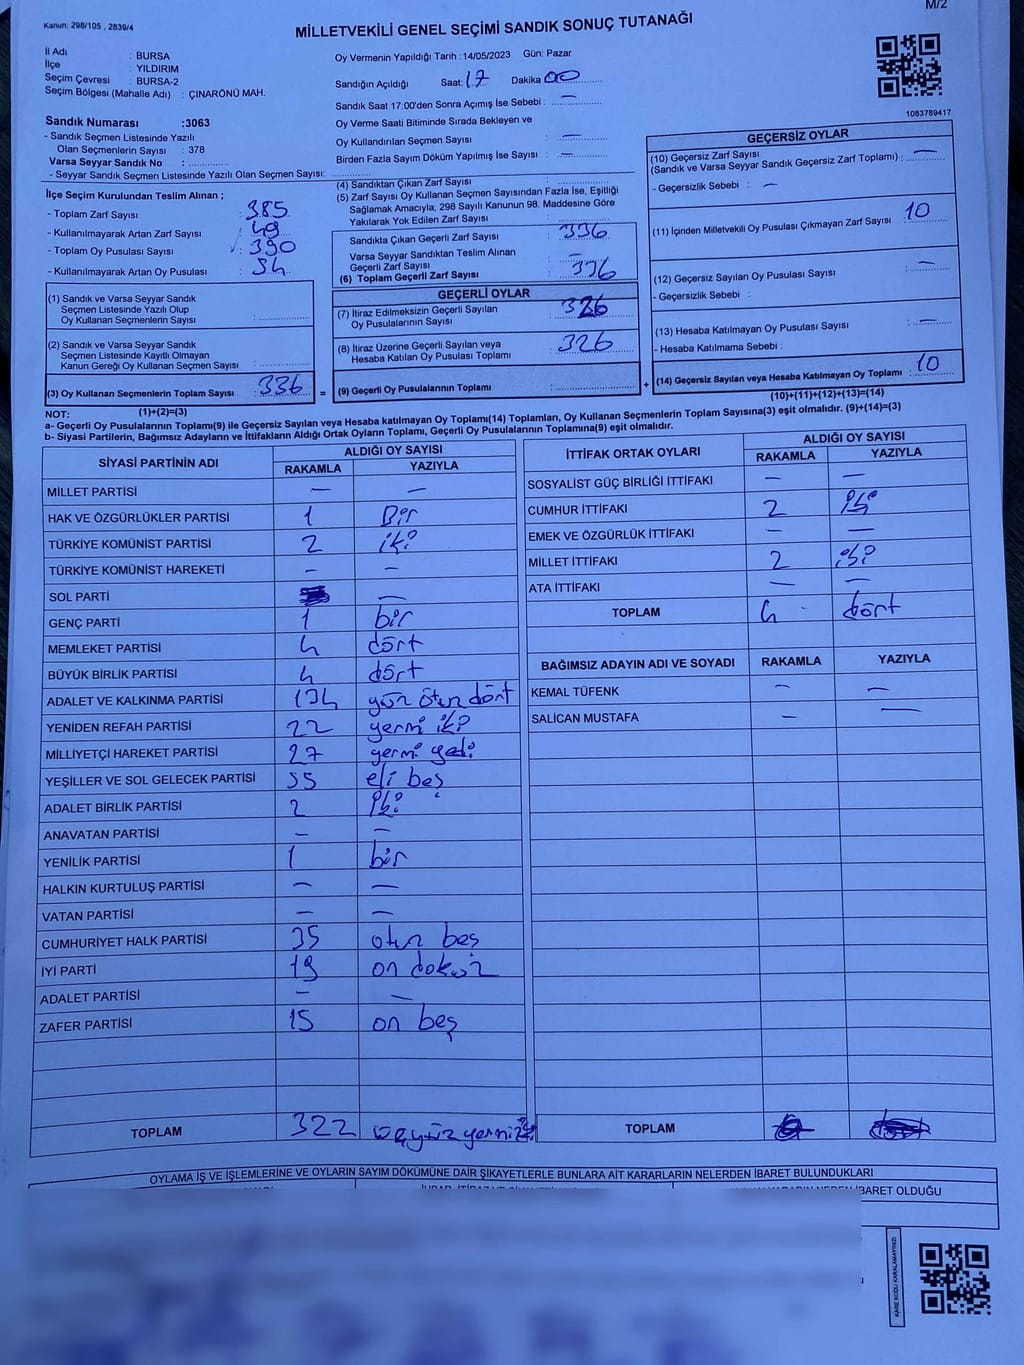 Kanun: 298/105 , 2839/4
M/2
MİLLETVEKİLİ GENEL SEÇİMİ SANDIK SONUÇ TUTANAĞI
İl Adı : BURSA
İlçe : YILDIRIM
Seçim Çevresi : BURSA-2
Seçim Bölgesi (Mahalle Adı) : ÇINARÖNÜ MAH.
Oy Vermenin Yapıldığı Tarih :14/05/2023 Gün: Pazar
Sandığın Açıldığı Saat: 17 Dakika 00
Sandık Saat 17:00'den Sonra Açımış İse Sebebi : —
Oy Verme Saati Bitiminde Sırada Bekleyen ve
Oy Kullandırılan Seçmen Sayısı : —
Birden Fazla Sayım Döküm Yapılmış İse Sayısı : —
1083789417
Sandık Numarası :3063
- Sandık Seçmen Listesinde Yazılı
Olan Seçmenlerin Sayısı : 378
Varsa Seyyar Sandık No :
- Seyyar Sandık Seçmen Listesinde Yazılı Olan Seçmen Sayısı:
İlçe Seçim Kurulundan Teslim Alınan ;
- Toplam Zarf Sayısı : 385
- Kullanılmayarak Artan Zarf Sayısı : 49
- Toplam Oy Pusulası Sayısı : 390
- Kullanılmayarak Artan Oy Pusulası : 54
(1) Sandık ve Varsa Seyyar Sandık
Seçmen Listesinde Yazılı Olup
Oy Kullanan Seçmenlerin Sayısı :
(2) Sandık ve Varsa Seyyar Sandık
Seçmen Listesinde Kayıtlı Olmayan
Kanun Gereği Oy Kullanan Seçmen Sayısı :
(3) Oy Kullanan Seçmenlerin Toplam Sayısı : 336
(1)+(2)=(3)
(4) Sandıktan Çıkan Zarf Sayısı :
(5) Zarf Sayısı Oy Kullanan Seçmen Sayısından Fazla İse, Eşitliği
Sağlamak Amacıyla, 298 Sayılı Kanunun 98. Maddesine Göre
Yakılarak Yok Edilen Zarf Sayısı :
Sandıkta Çıkan Geçerli Zarf Sayısı : 336
Varsa Seyyar Sandıktan Teslim Alınan
Geçerli Zarf Sayısı : —
(6) Toplam Geçerli Zarf Sayısı : 336
GEÇERLİ OYLAR
(7) İtiraz Edilmeksizin Geçerli Sayılan
Oy Pusulalarının Sayısı : 326
(8) İtiraz Üzerine Geçerli Sayılan veya
Hesaba Katılan Oy Pusulası Toplamı : 326
= (9) Geçerli Oy Pusulalarının Toplamı :
GEÇERSİZ OYLAR
(10) Geçersiz Zarf Sayısı
(Sandık ve Varsa Seyyar Sandık Geçersiz Zarf Toplamı) : —
- Geçersizlik Sebebi : —
(11) İçinden Milletvekili Oy Pusulası Çıkmayan Zarf Sayısı : 10
(12) Geçersiz Sayılan Oy Pusulası Sayısı : —
- Geçersizlik Sebebi :
(13) Hesaba Katılmayan Oy Pusulası Sayısı : —
- Hesaba Katılmama Sebebi :
+ (14) Geçersiz Sayılan veya Hesaba Katılmayan Oy Toplamı : 10
(10)+(11)+(12)+(13)=(14)
NOT:
a- Geçerli Oy Pusulalarının Toplamı(9) ile Geçersiz Sayılan veya Hesaba katılmayan Oy Toplamı(14) Toplamları, Oy Kullanan Seçmenlerin Toplam Sayısına(3) eşit olmalıdır. (9)+(14)=(3)
b- Siyasi Partilerin, Bağımsız Adayların ve İttifakların Aldığı Ortak Oyların Toplamı, Geçerli Oy Pusulalarının Toplamına(9) eşit olmalıdır.
SİYASİ PARTİNİN ADI ALDIĞI OY SAYISI
RAKAMLA YAZIYLA
MİLLET PARTİSİ — —
HAK VE ÖZGÜRLÜKLER PARTİSİ 1 Bir
TÜRKİYE KOMÜNİST PARTİSİ 2 iki
TÜRKİYE KOMÜNİST HAREKETİ — —
SOL PARTİ —
GENÇ PARTİ 1 bir
MEMLEKET PARTİSİ 4 dört
BÜYÜK BİRLİK PARTİSİ 4 dört
ADALET VE KALKINMA PARTİSİ 134 yüz otuz dört
YENİDEN REFAH PARTİSİ 22 yermi iki
MİLLİYETÇİ HAREKET PARTİSİ 27 yermi yedi
YEŞİLLER VE SOL GELECEK PARTİSİ 55 eli beş
ADALET BİRLİK PARTİSİ 2 iki
ANAVATAN PARTİSİ — —
YENİLİK PARTİSİ 1 bir
HALKIN KURTULUŞ PARTİSİ — —
VATAN PARTİSİ — —
CUMHURİYET HALK PARTİSİ 35 otuz beş
İYİ PARTİ 19 on dokuz
ADALET PARTİSİ — —
ZAFER PARTİSİ 15 on beş
TOPLAM 322 üçyüz yermi iki
İTTİFAK ORTAK OYLARI ALDIĞI OY SAYISI
RAKAMLA YAZIYLA
SOSYALİST GÜÇ BİRLİĞİ İTTİFAKI — —
CUMHUR İTTİFAKI 2 iki
EMEK VE ÖZGÜRLÜK İTTİFAKI — —
MİLLET İTTİFAKI 2 iki
ATA İTTİFAKI — —
TOPLAM 4 dört
BAĞIMSIZ ADAYIN ADI VE SOYADI RAKAMLA YAZIYLA
KEMAL TÜFENK — —
SALİCAN MUSTAFA — —
TOPLAM
OYLAMA İŞ VE İŞLEMLERİNE VE OYLARIN SAYIM DÖKÜMÜNE DAİR ŞİKAYETLERLE BUNLARA AİT KARARLARIN NELERDEN İBARET BULUNDUKLARI
İBARET OLDUĞU
KARE KODU KARALAMAYINIZ!